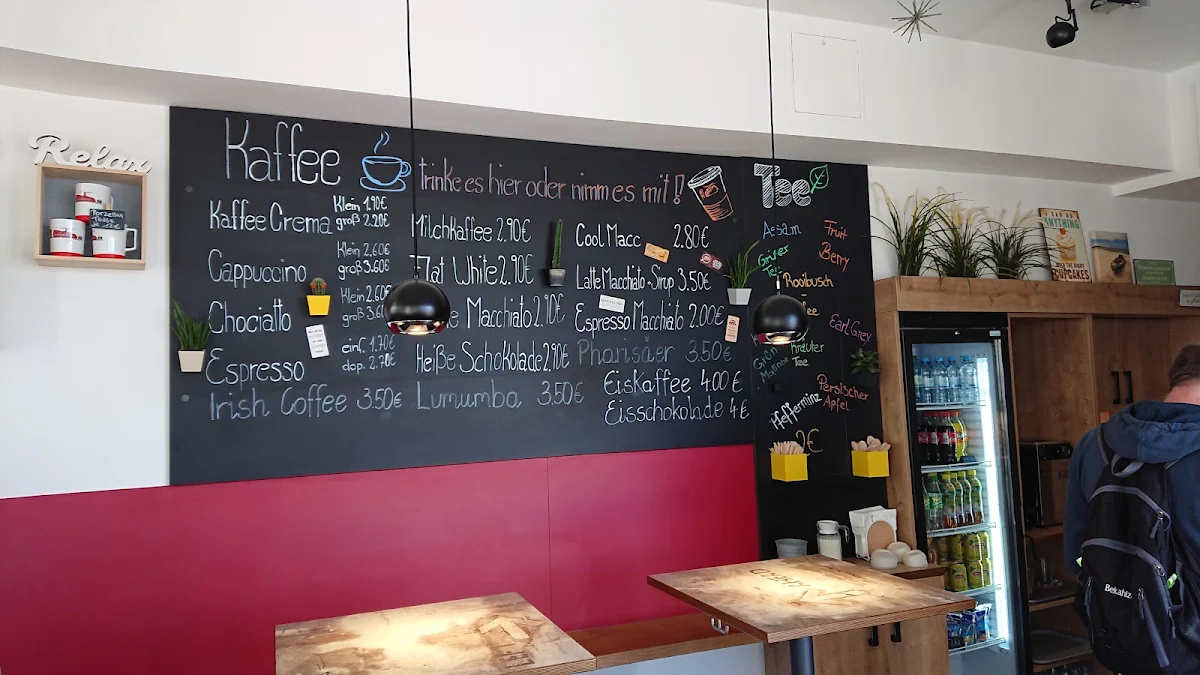 Relax
Kaffee
trinke es hier oder nimm es mit!
Kaffee Crema
Klein 1.90€
groß 2.20€
Cappuccino
Klein 2.60€
groß 3.60€
Chociatto
Klein 2.60
groß 3.6
Espresso
einf. 1.70€
dop. 2.70€
Irish Coffee 3.50€
Milchkaffee 2.90€
Flat White 2.90€
Macchiato 2.90€
Heiße Schokolade 2.90€
Lumumba 3.50€
Cool Macc 2.80€
Latte Macchiato + Sirup 3.50€
Espresso Macchiato 2.00€
Pharisäer 3.50€
Eiskaffee 4.00€
Eisschokolade 4€
Tee
Assam
Fruit
Berry
Grüner
Tee
Rooibusch
Earl Grey
Kräuter
Tee
Persischer
Apfel
Pfefferminz
2€
ANYTHING
CUPCAKES
Bekahiz